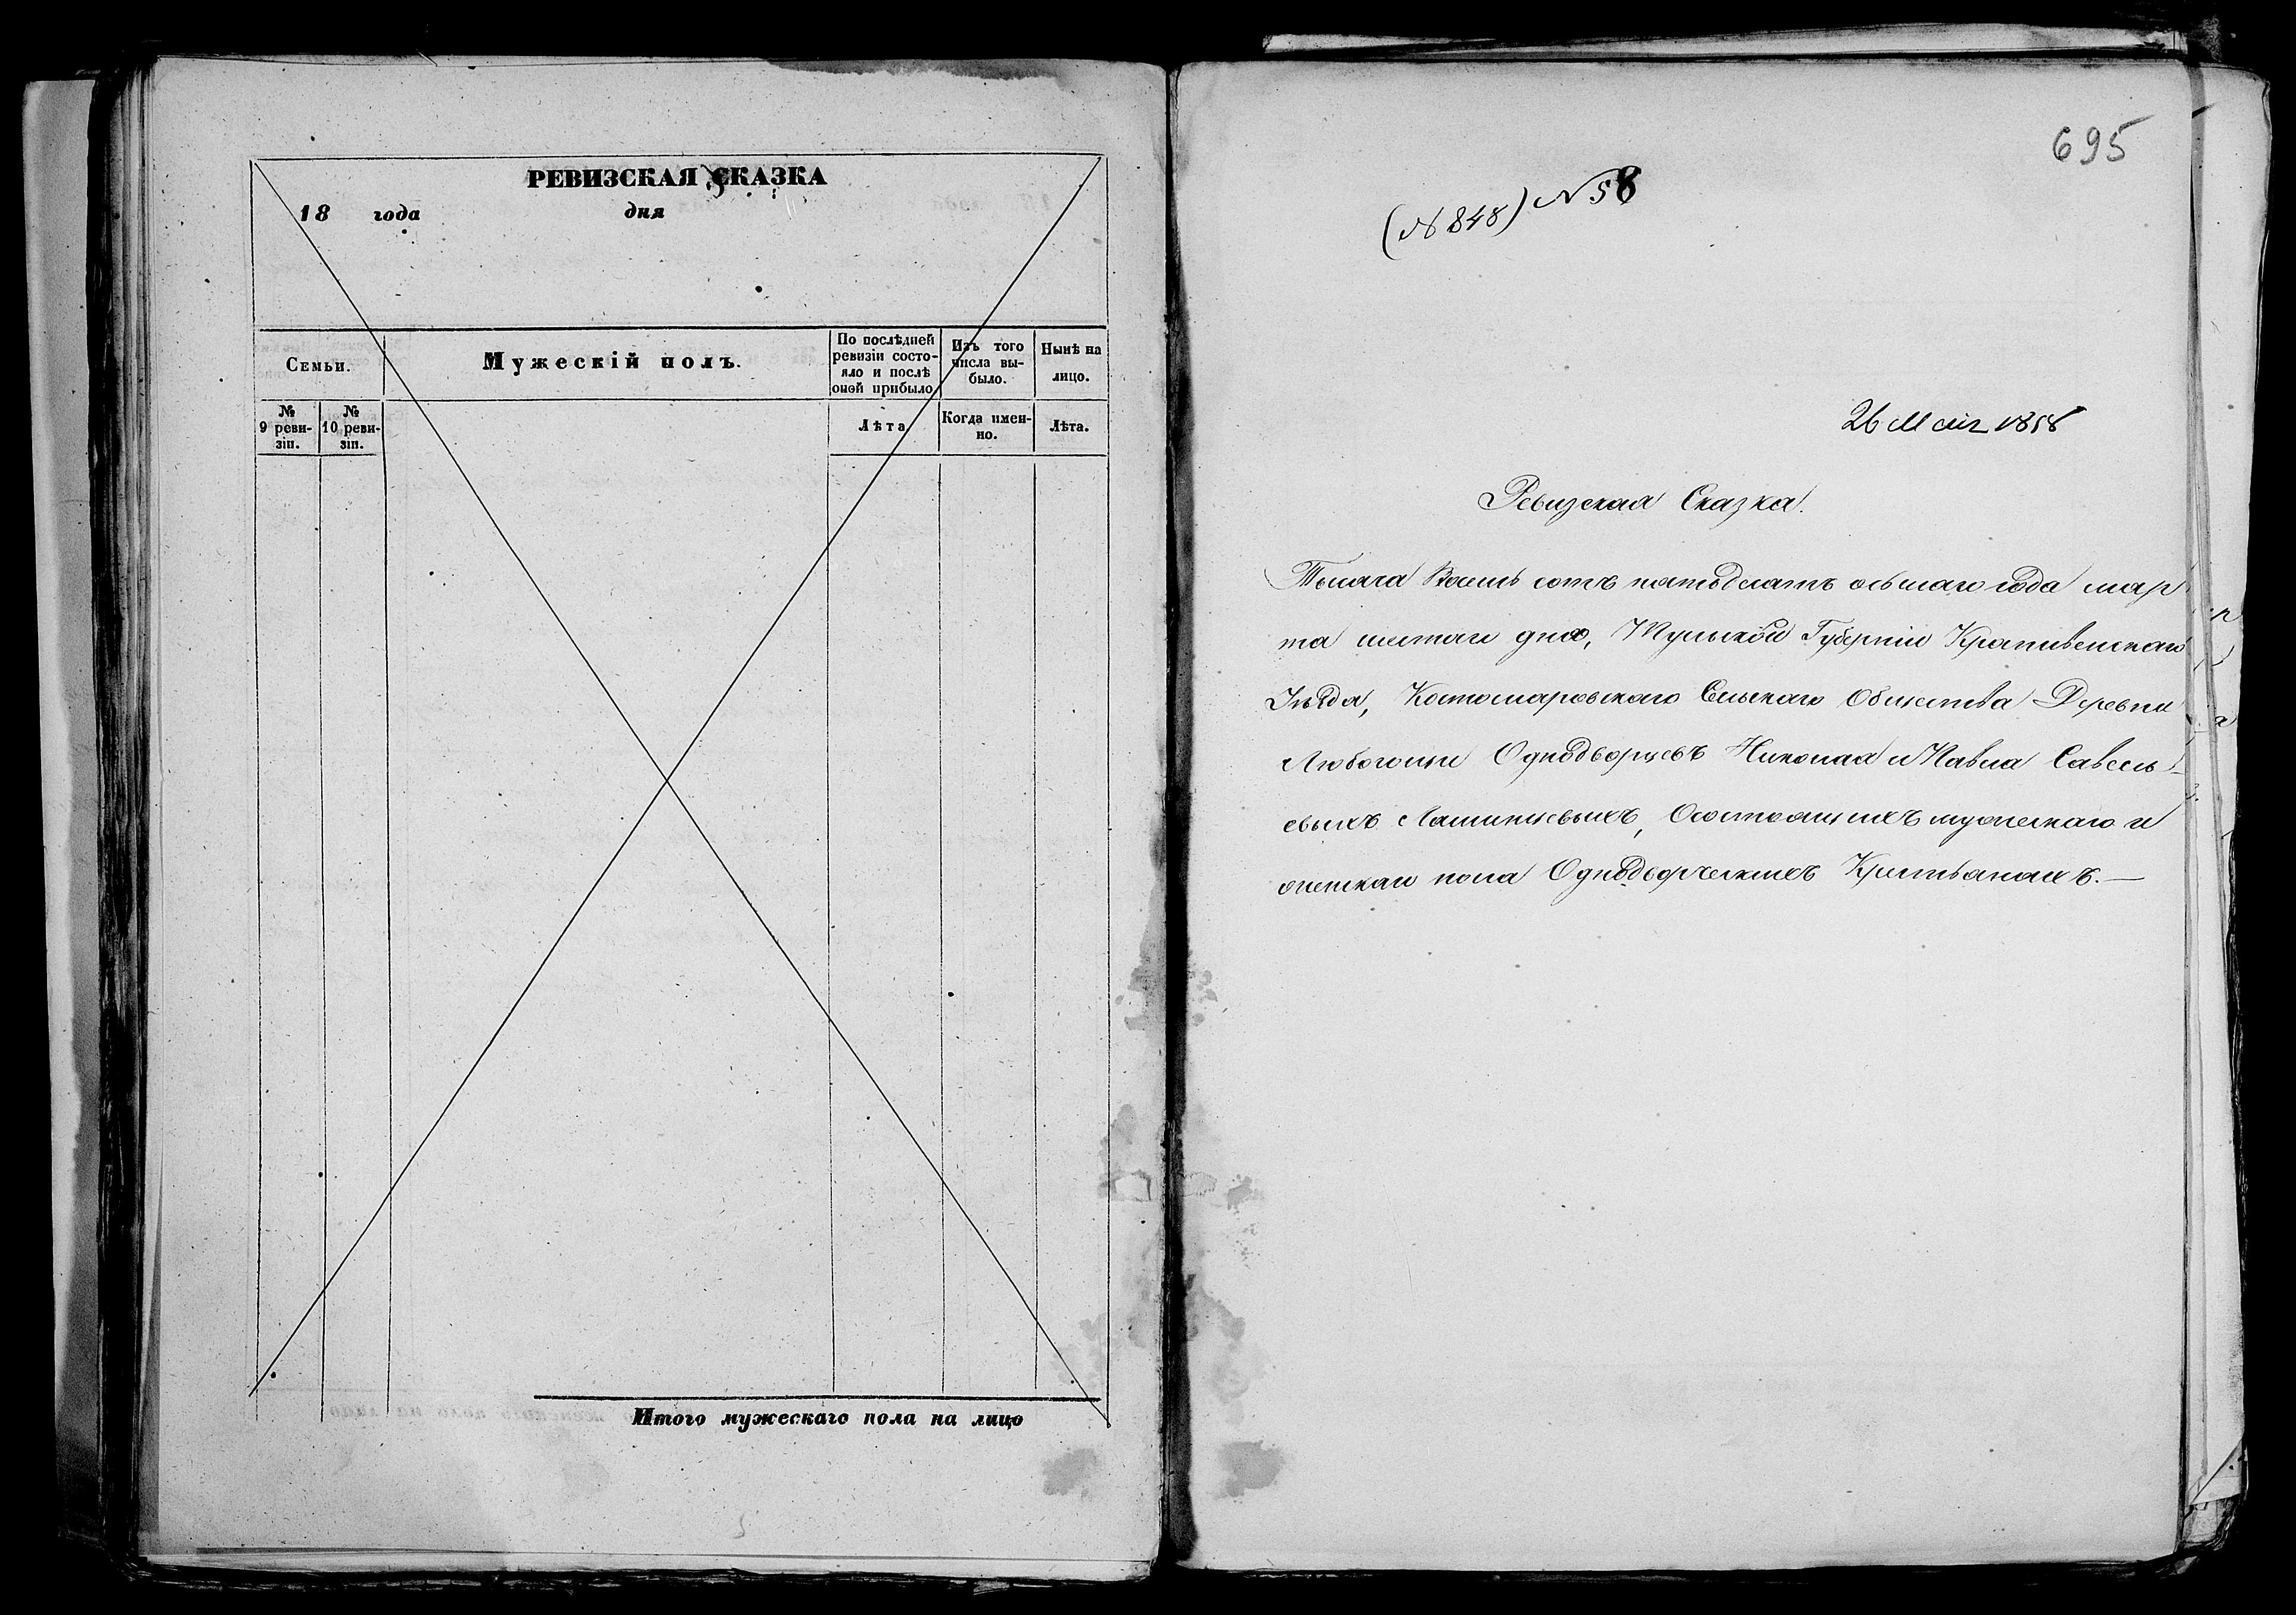 РЕВИЗСКАЯ СКАЗКА
18 года дня
Семьи.
Мужескій полъ.
По послѣдней ревизіи состо-яло и послѣ оной прибыло
Изъ того числа вы-было.
Нынѣ на лицо.
№ 9 реви-зіи.
№ 10 реви-зіи.
Лѣта
Когда имен-но.
Лѣта.
Итого мужескаго пола на лицо
695
(№ 848) № 58
26 Мая 1858
Ревизская Сказка.
Тысяча Восемь сотъ пятьдесятъ осьмаго года мар
та шестаго дня, Тульской Губерніи Крапивенскаго
Уѣзда, Костомаровскаго Сельскаго Общества Деревни
Любогощи Однодворцевъ Николая и Павла Савель-
евыхъ, О состоящихъ мужескаго и
женскаго пола Однодворческихъ Крестьянахъ.—